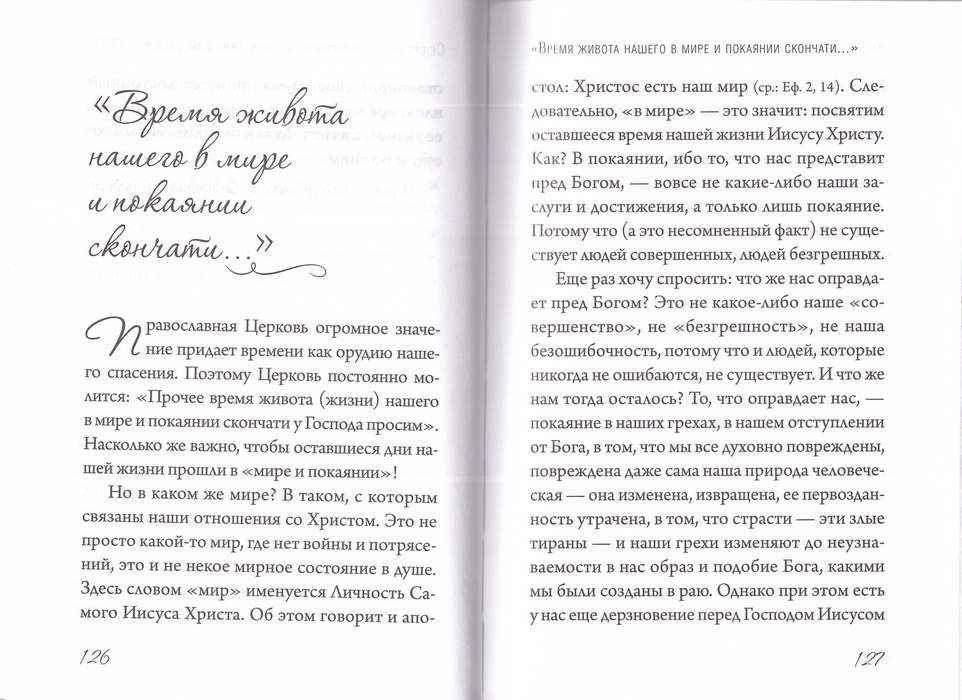 «Время живота
нашего в мире
и покаянии
скончати...»
Православная Церковь огромное значе-
ние придает времени как орудию наше-
го спасения. Поэтому Церковь постоянно мо-
лится: «Прочее время живота (жизни) нашего
в мире и покаянии скончати у Господа просим».
Насколько же важно, чтобы оставшиеся дни на-
шей жизни прошли в «мире и покаянии»!
Но в каком же мире? В таком, с которым
связаны наши отношения со Христом. Это не
просто какой-то мир, где нет войны и потрясе-
ний, это и не некое мирное состояние в душе.
Здесь словом «мир» именуется Личность Са-
мого Иисуса Христа. Об этом говорит и апо-
126
«Время живота нашего в мире и покаянии скончати...»
стол: Христос есть наш мир (ср.: Еф. 2, 14). Сле-
довательно, «в мире» — это значит: посвятим
оставшееся время нашей жизни Иисусу Христу.
Как? В покаянии, ибо то, что нас представит
пред Богом, — вовсе не какие-либо наши за-
слуги и достижения, а только лишь покаяние.
Потому что (а это несомненный факт) не суще-
ствует людей совершенных, людей безгрешных.
Еще раз хочу спросить: что же нас оправда-
ет пред Богом? Это не какое-либо наше «со-
вершенство», не «безгрешность», не наша
безошибочность, потому что и людей, которые
никогда не ошибаются, не существует. И что же
нам тогда осталось? То, что оправдает нас, —
покаяние в наших грехах, в нашем отступлении
от Бога, в том, что мы все духовно повреждены,
повреждена даже сама наша природа человече-
ская — она изменена, извращена, ее первоздан-
ность утрачена, в том, что страсти — эти злые
тираны — и наши грехи изменяют до неузна-
ваемости в нас образ и подобие Бога, какими
мы были созданы в раю. Однако при этом есть
у нас еще дерзновение перед Господом Иисусом
127